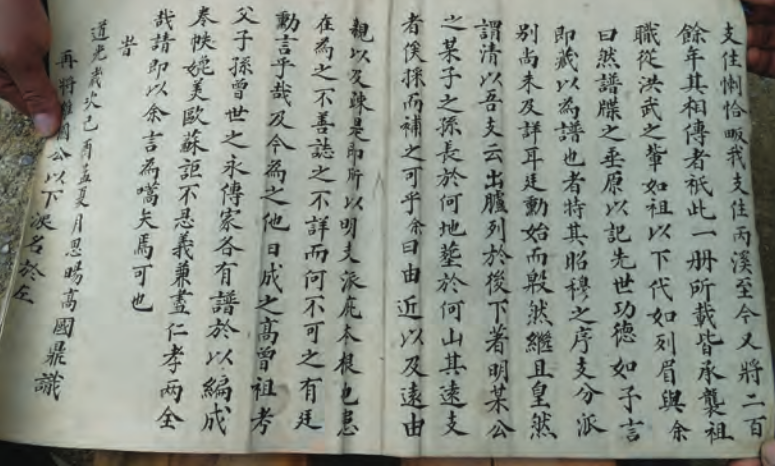 支住惻恰畈我支住丙溪至今又將二百
餘年其相傳者祇此一册所載皆承襲祖
職從洪武之輩如祖以下代如列眉與余
曰然譜牒之垂原以記先世功德如予言
即藏以為譜也者特其昭穆之序支分派
別尚未及詳耳廷勳始而殷然繼且皇然
謂清以吾支云出臚列於後下著明某公
之某子之孫長於何地塟於何山其遠支
者俟採而補之可乎余曰由近以及遠由
親以及疎是即所以明支派庇本根也患
在為之不善誌之不詳而何不可之有廷
勳言乎哉及今為之他日成之高曾祖考
父子孫曾世之永傳家各有譜於以編成
奏帙媲美歐蘇詎不忍義兼盡仁孝兩全
哉請即以余言為嚆矢焉可也
旹
道光歲次己酉孟夏月思暘高國鼎識
再將公以下派名於左